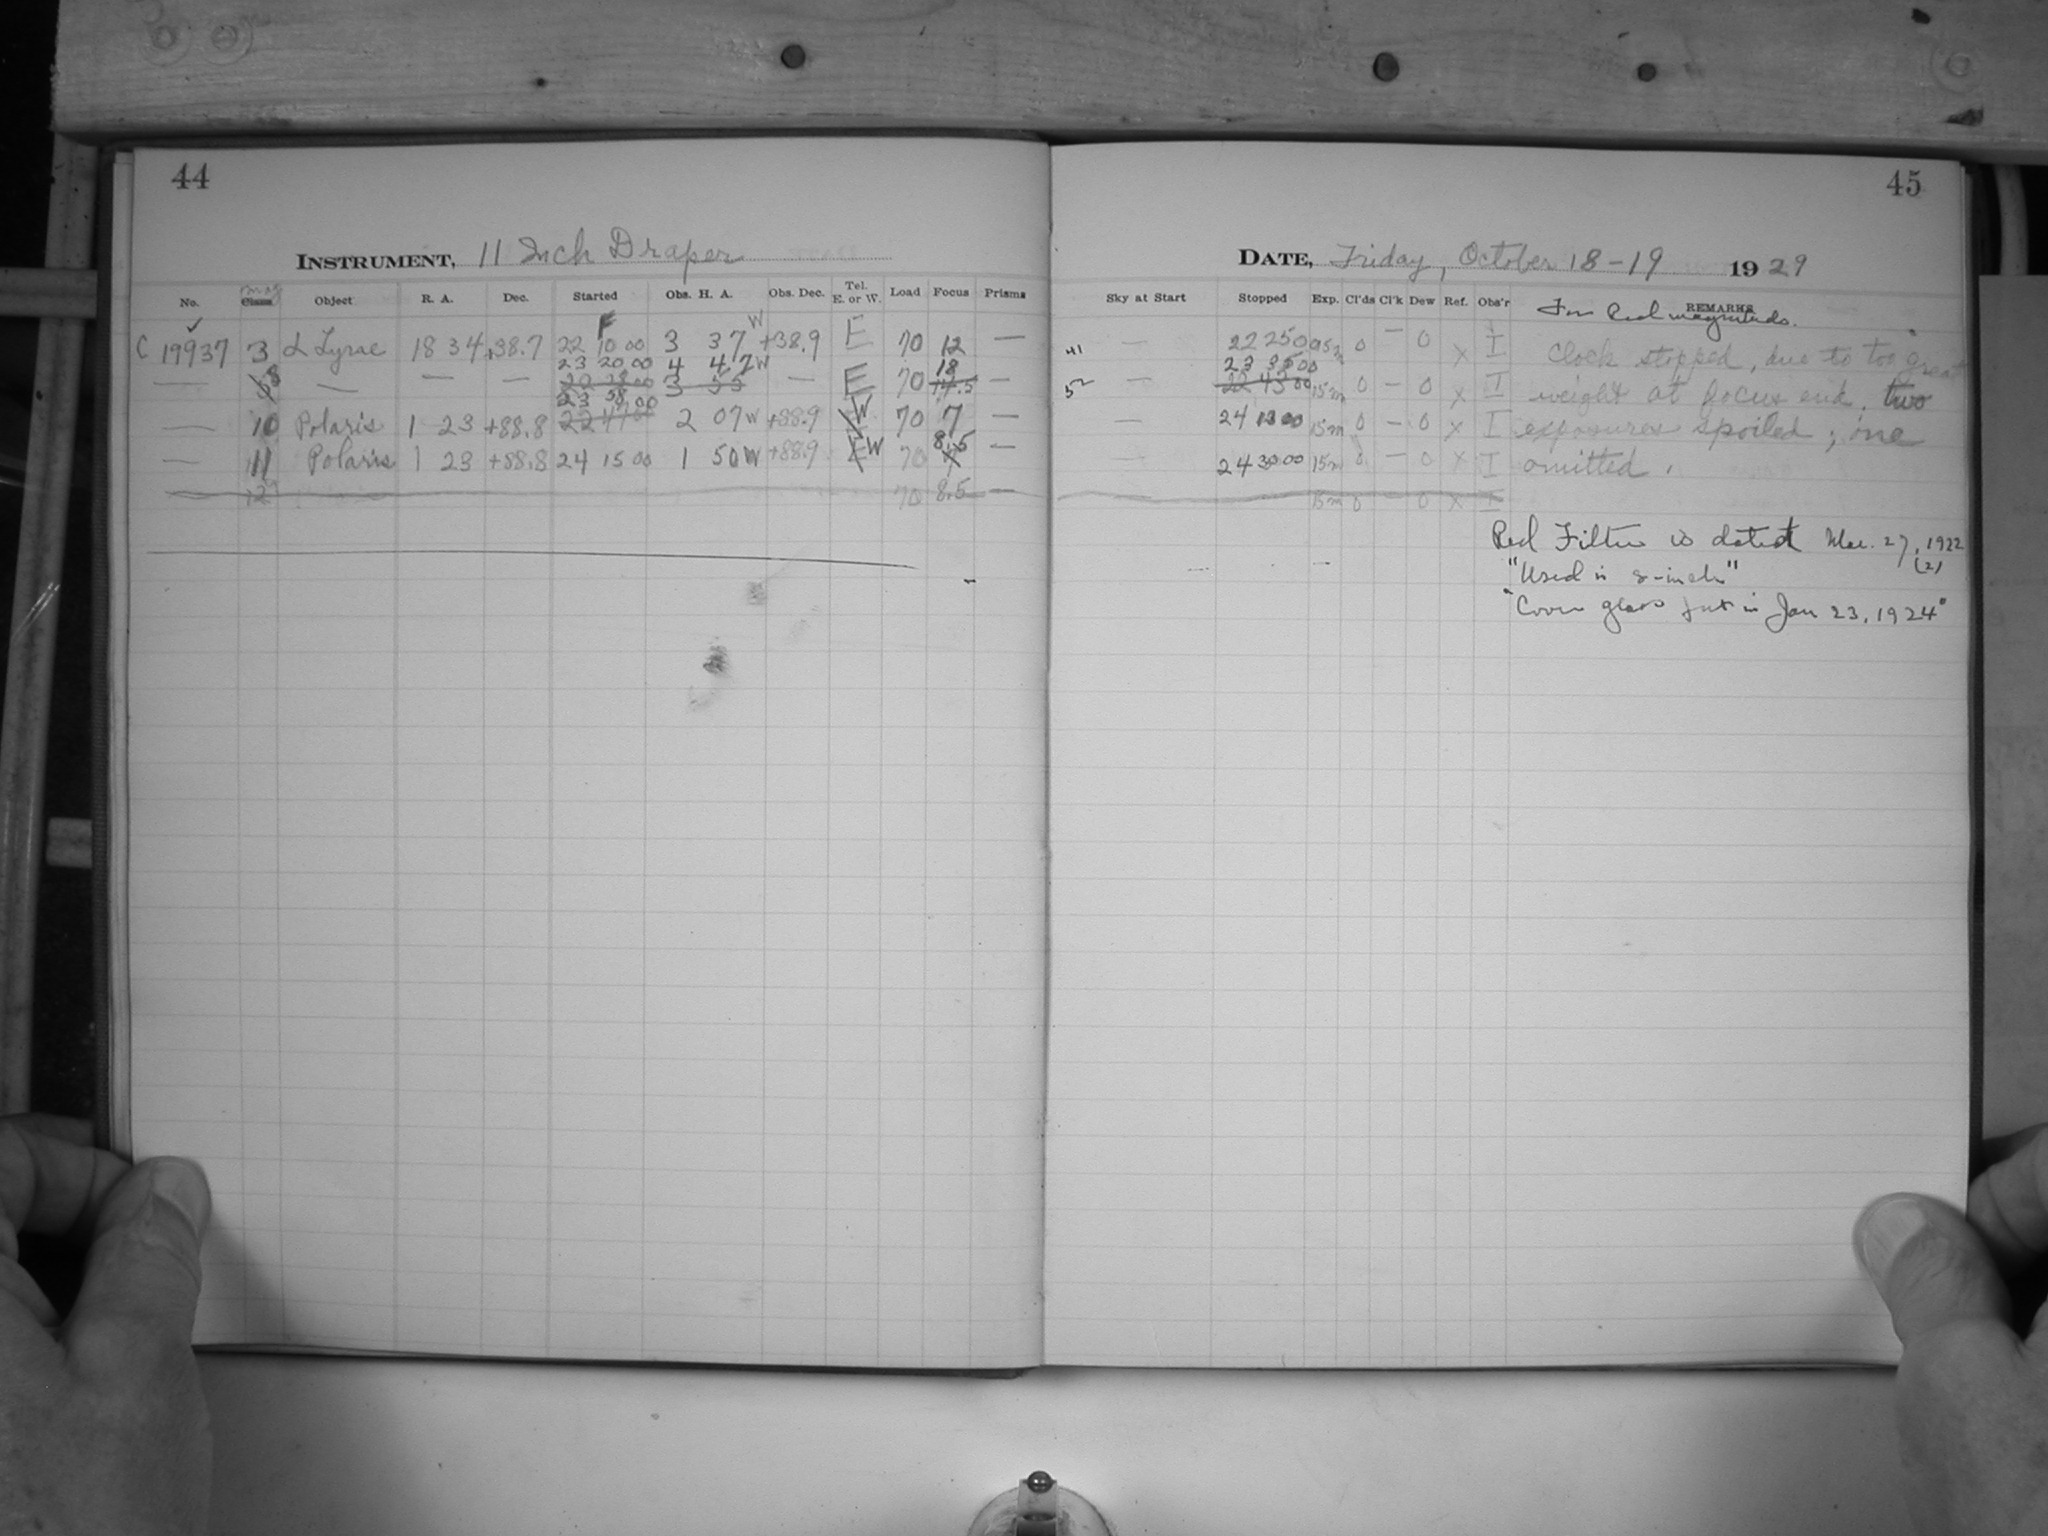 44
45
INSTRUMENT, 11 Inch Draper
DATE, Friday, October 18-19 1929
No. Class Object R. A. Dec. Started Obs. H. A. Obs. Dec. Tel. E. or W. Load Focus Prisms
Sky at Start Stopped Exp. Cl'ds Cl'k Dew Ref. Obs'r REMARKS
For Red magnitudes.
C 19937 3 α Lyrae 18 34 +38.7 22 10 00 3 37 W +38.9 E 70 12 —
— 22 25 00 15m 0 — 0 x I Clock stopped, due to too great
23 20 00 4 47 W 18
23 35 00
— 8 — — — 22 28 00 3 55 — E 70 14.5 —
— 22 43 00 15m 0 — 0 x I weight at focus end. two
23 58 00
— 10 Polaris 1 23 +88.8 2 07 W +88.9 W 70 7 —
— 24 13 00 15m 0 — 0 x I exposures spoiled; one
— 11 Polaris 1 23 +88.8 24 15 00 1 50 W +88.9 W 70 8.5 —
— 24 30 00 15m 0 — 0 x I omitted.
12 70 8.5 —
15m 0 — 0 x I
Red Filter is dated Mar. 27, 1922
(2)
"Used in 8-inch"
"Cover glass put in Jan 23, 1924"